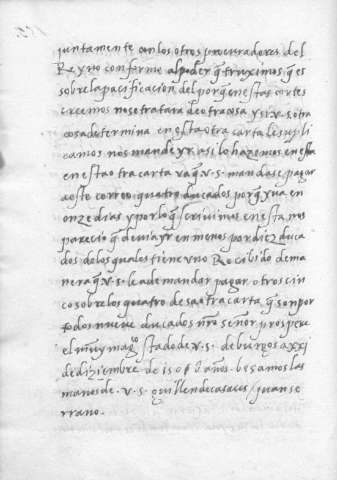 juntamente con los otros procuradores del
Reyno conforme al poder q truximos q es
sobre la pacificacion del por q en estas cortes
creemos no se tratara de otra cosa y si v. s. otra
cosa determina en esta otra carta le supli
camos nos mande yr asi lo hazemos en esta
en esta otra carta va q v. s. mandase pagar
a este correo quatro ducados por q yva en
onze dias y por lo q scrivimos en esta nos
parecio q devia yr en menos por diez duca
dos de los quales tiene uno Recibido de ma
nera q v. s. le a de mandar pagar otros cin
co sobre los quatro desa otra carta q son por
todos nueve ducados nro señor prospere
el muy mag^co stado de v. s. de burgos a xxj
de diziembre de años. besamos las
manos de. v. s. guillen de casaos / juan se
rrano.